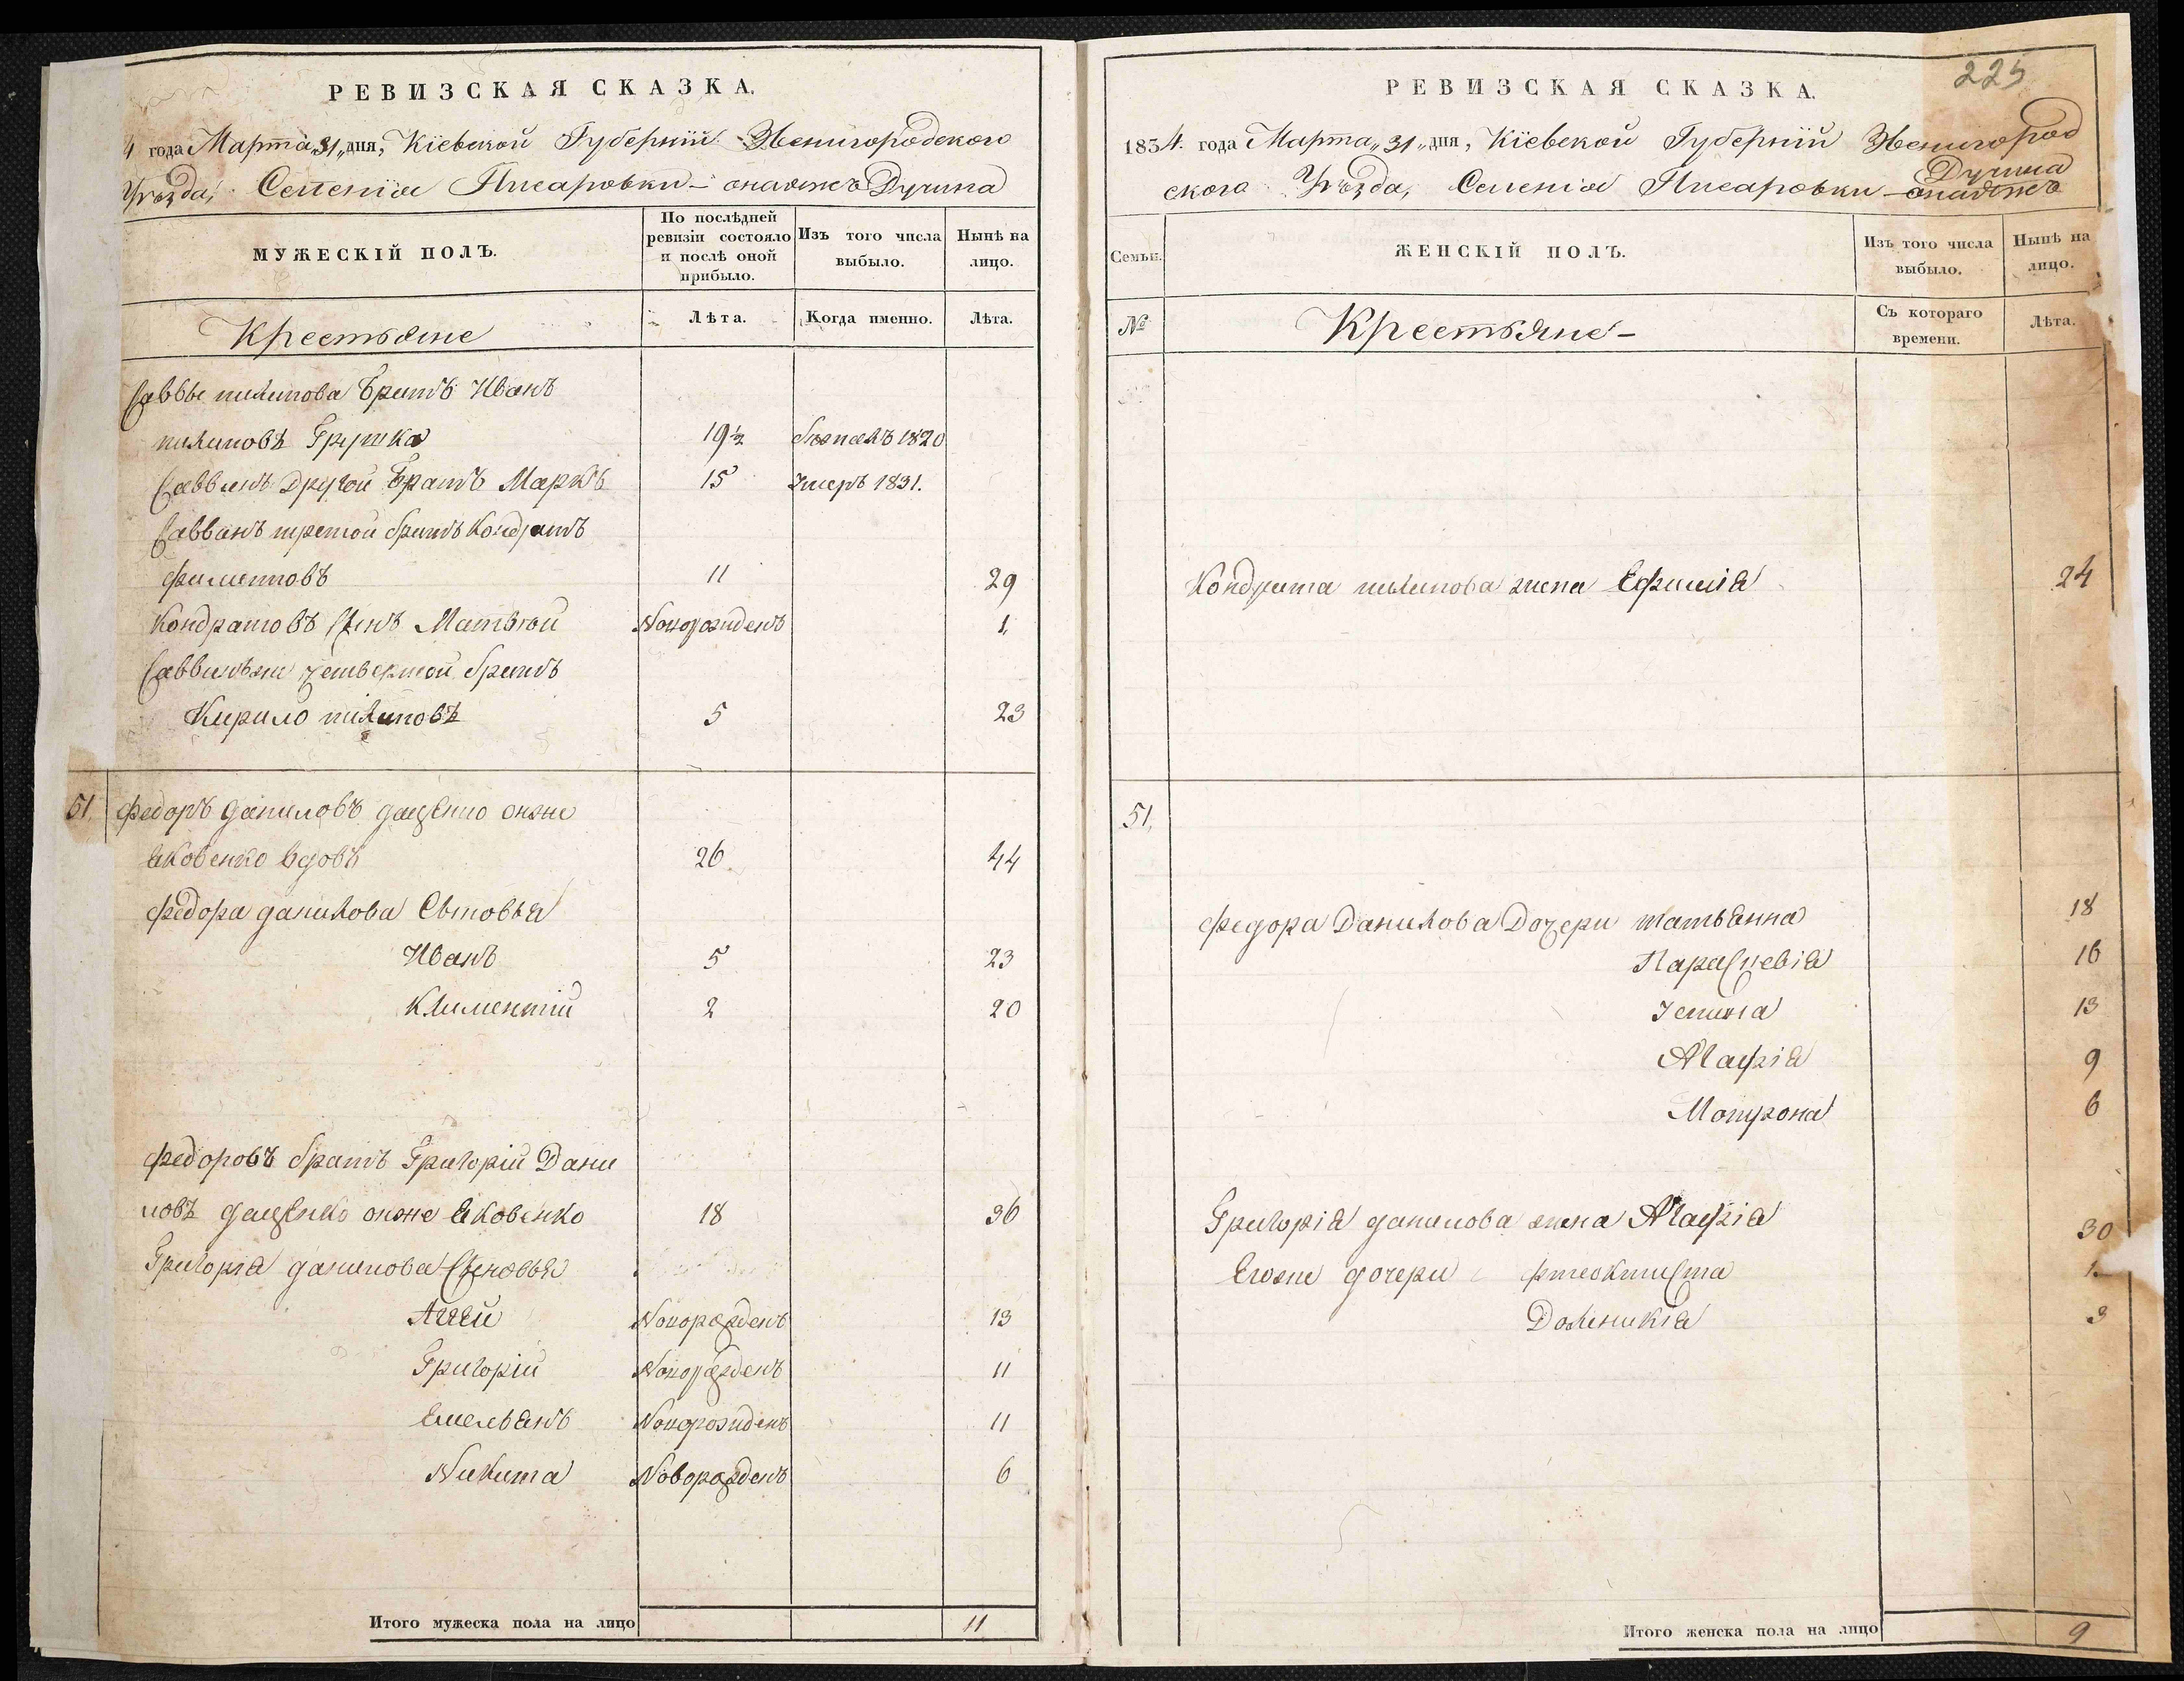 РЕВИЗСКАЯ СКАЗКА.
4 года Марта „31„ дня, Кіевской Губерніи Звенигородского
Уѣзда, Селенія Писаровки – онаяжъ Дучина
МУЖЕСКІЙ ПОЛЪ.
По послѣдней ревизіи состояло и послѣ оной прибыло.
Изъ того числа выбыло.
Нынѣ на лицо.
Крестьяне
Лѣта.
Когда именно.
Лѣта.
Саввы пилипова братъ Иванъ
пилиповъ Грушка 19½ 1820
Саввинъ другой братъ Маркъ 15 Умеръ 1831.
Саввинъ третой братъ Кондратъ
11 29
Кондратовъ Сынъ Матвѣй Новорожденъ 1.
Саввинъже четвертой братъ
Кирило пилиповъ 5 23
51. Федоръ даниловъ дащенко онже
Яковенко вдовъ 26 44
Федора данилова Сыновья
Иванъ 5 23
Климентій 2 20
Федоровъ братъ Григорій Дани
ловъ дащенко онже Яковенко 18 36
Григорія данилова Сыновья
Аггей Новорожденъ 13
Григорій Новорожденъ 11
Емельянъ Новорожденъ 11
Никита Новорожденъ 6
Итого мужеска пола на лицо 11
225
РЕВИЗСКАЯ СКАЗКА.
1834. года Марта „31„ дня, Кіевской Губерніи Звенигород
ского Уѣзда, Селенія Писаровки – онаяжъ Дучина
Семьи.
ЖЕНСКІЙ ПОЛЪ.
Изъ того числа выбыло.
Нынѣ на лицо.
№
Крестьяне –
Съ котораго времени.
Лѣта.
Кондрата пилипова жена Ефимія 24
51.
Федора Данилова Дочери татьянна 18
Параскевія 16
13
Агафія 9
Мотрона 6
Григорія данилова жена Агафія 30
Егоже дочери 1.
Доминикія 3
Итого женска пола на лицо 9